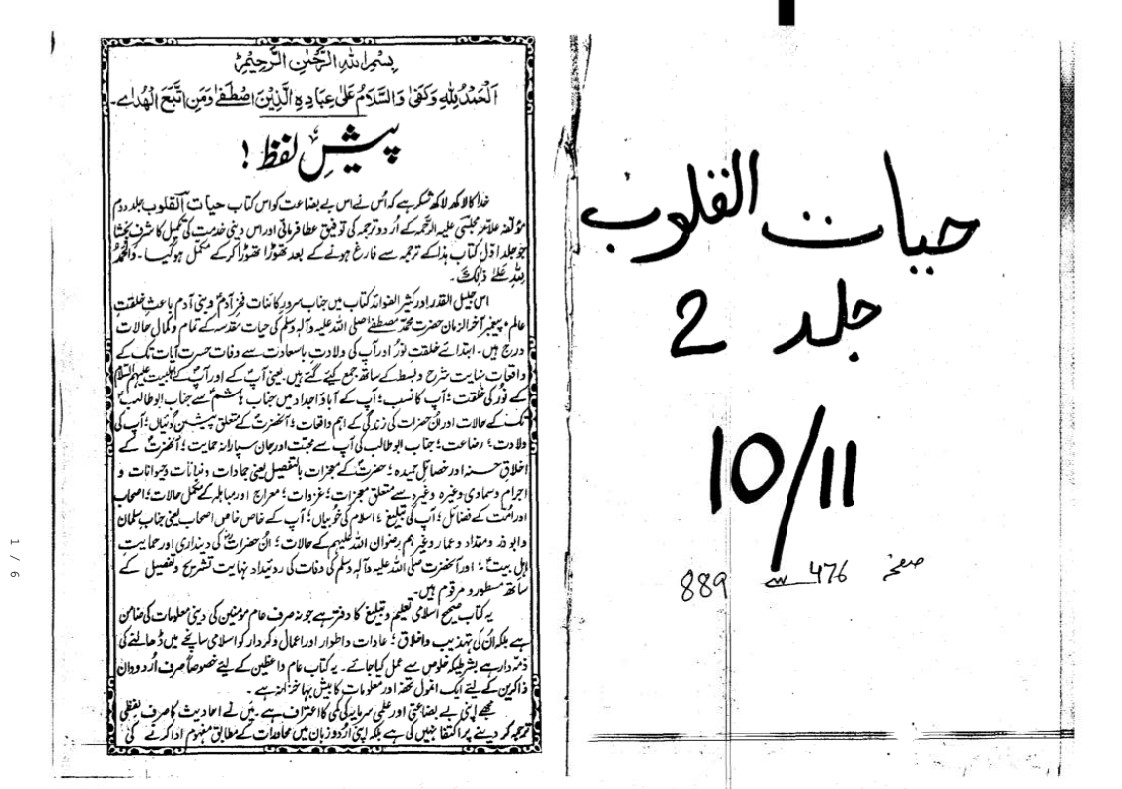 حیات القلوب
جلد 2
10/11
صفحہ 476 سے 889
بسم اللہ الرحمٰن الرحیم
الحمد للہ وکفیٰ والسلام علیٰ عبادہ الذین اصطفےٰ ومن اتبع الھداے۔
پیش لفظ !
خدا کا لاکھ لاکھ شکر ہے کہ اُس نے اس بے بضاعت کو اس کتاب حیات القلوب جلد دوم
مؤلفہ علامہ مجلسی علیہ الرحمہ کے اُردو ترجمہ کی توفیق عطا فرمائی اور اس دینی خدمت کی تکمیل کا شرف بخشا
جو جلد اوّل کتاب ہذا کے ترجمہ سے فارغ ہونے کے بعد تھوڑا تھوڑا کرکے مکمل ہوگیا۔ والحمد
للہ علےٰ ذٰلک۔
اس جلیل القدر اور کثیر الفوائد کتاب میں جناب سرور کائنات فخرِ آدمؑ و بنی آدم باعثِ خلقتِ
عالم، پیغمبر آخر الزمان حضرت محمد مصطفےٰ صلی اللہ علیہ وآلہ وسلم کی حیات مقدسہ کے تمام و کمال حالات
درج ہیں۔ ابتدائے خلقتِ نورؐ اور آپ کی ولادتِ باسعادت سے وفات حسرت آیات تک کے
واقعات نہایت شرح و بسط کے ساتھ جمع کیئے گئے ہیں۔ یعنی آپؐ کے اور آپؐ کے اہلبیت علیہم السلام
کے نورؐ کی خلقت؛ آپ کا نسب؛ آپ کے آباؤ اجداد میں جناب ہاشمؑ سے جناب ابوطالبؑ
تک کے حالات اور اُن حضرات کی زندگی کے اہم واقعات؛ آنحضرتؐ کے متعلق پیشین گوئیاں؛ آپ کی
ولادت؛ رضاعت؛ جناب ابوطالب کی آپ سے محبت اور جان سپارانہ حمایت؛ آنحضرتؐ کے
اخلاق حسنہ اور خصائل حمیدہ؛ حضرتؐ کے معجزات بالتفصیل یعنی جمادات و نباتات و حیوانات و
اجرام سماوی وغیرہ وغیرہ سے متعلق معجزات؛ غزوات؛ معراج اور مباہلہ کے مکمل حالات؛ اصحاب
اور اُمت کے فضائل؛ آپ کی تبلیغ؛ اسلام کی خوبیاں؛ آپ کے خاص خاص اصحاب یعنی جناب سلمان
و ابوذر و مقداد و عمار وغیرہم رضوان اللہ علیہم کے حالات؛ اُن حضرات کی دینداری اور حمایتِ
اہل بیتؑ؛ اور آنحضرت صلی اللہ علیہ وآلہ وسلم کی وفات کی روئیداد نہایت تشریح و تفصیل کے
ساتھ مسطور و مرقوم ہیں۔
یہ کتاب صحیح اسلامی تعلیم و تبلیغ کا دفتر ہے جو نہ صرف عام مؤمنین کی دینی معلومات کی ضامن
ہے بلکہ اُن کی تہذیب و اخلاق؛ عادات و اطوار اور اعمال و کردار کو اسلامی سانچے میں ڈھالنے کی
ذمہ دار ہے بشرطیکہ خلوص سے عمل کیا جائے۔ یہ کتاب عام واعظین کے لیئے خصوصاً صرف اُردو دان
ذاکرین کے لیئے ایک انمول تحفہ اور معلومات کا بیش بہا خزانہ ہے۔
مجھے اپنی بے بضاعتی اور علمی سرمایہ کی کمی کا اعتراف ہے۔ میں نے احادیث کا صرف لفظی
ترجمہ کر دینے پر اکتفا نہیں کی ہے بلکہ اپنی اُردو زبان میں محاورات کے مطابق مفہوم ادا کرنے کی
1 / 6